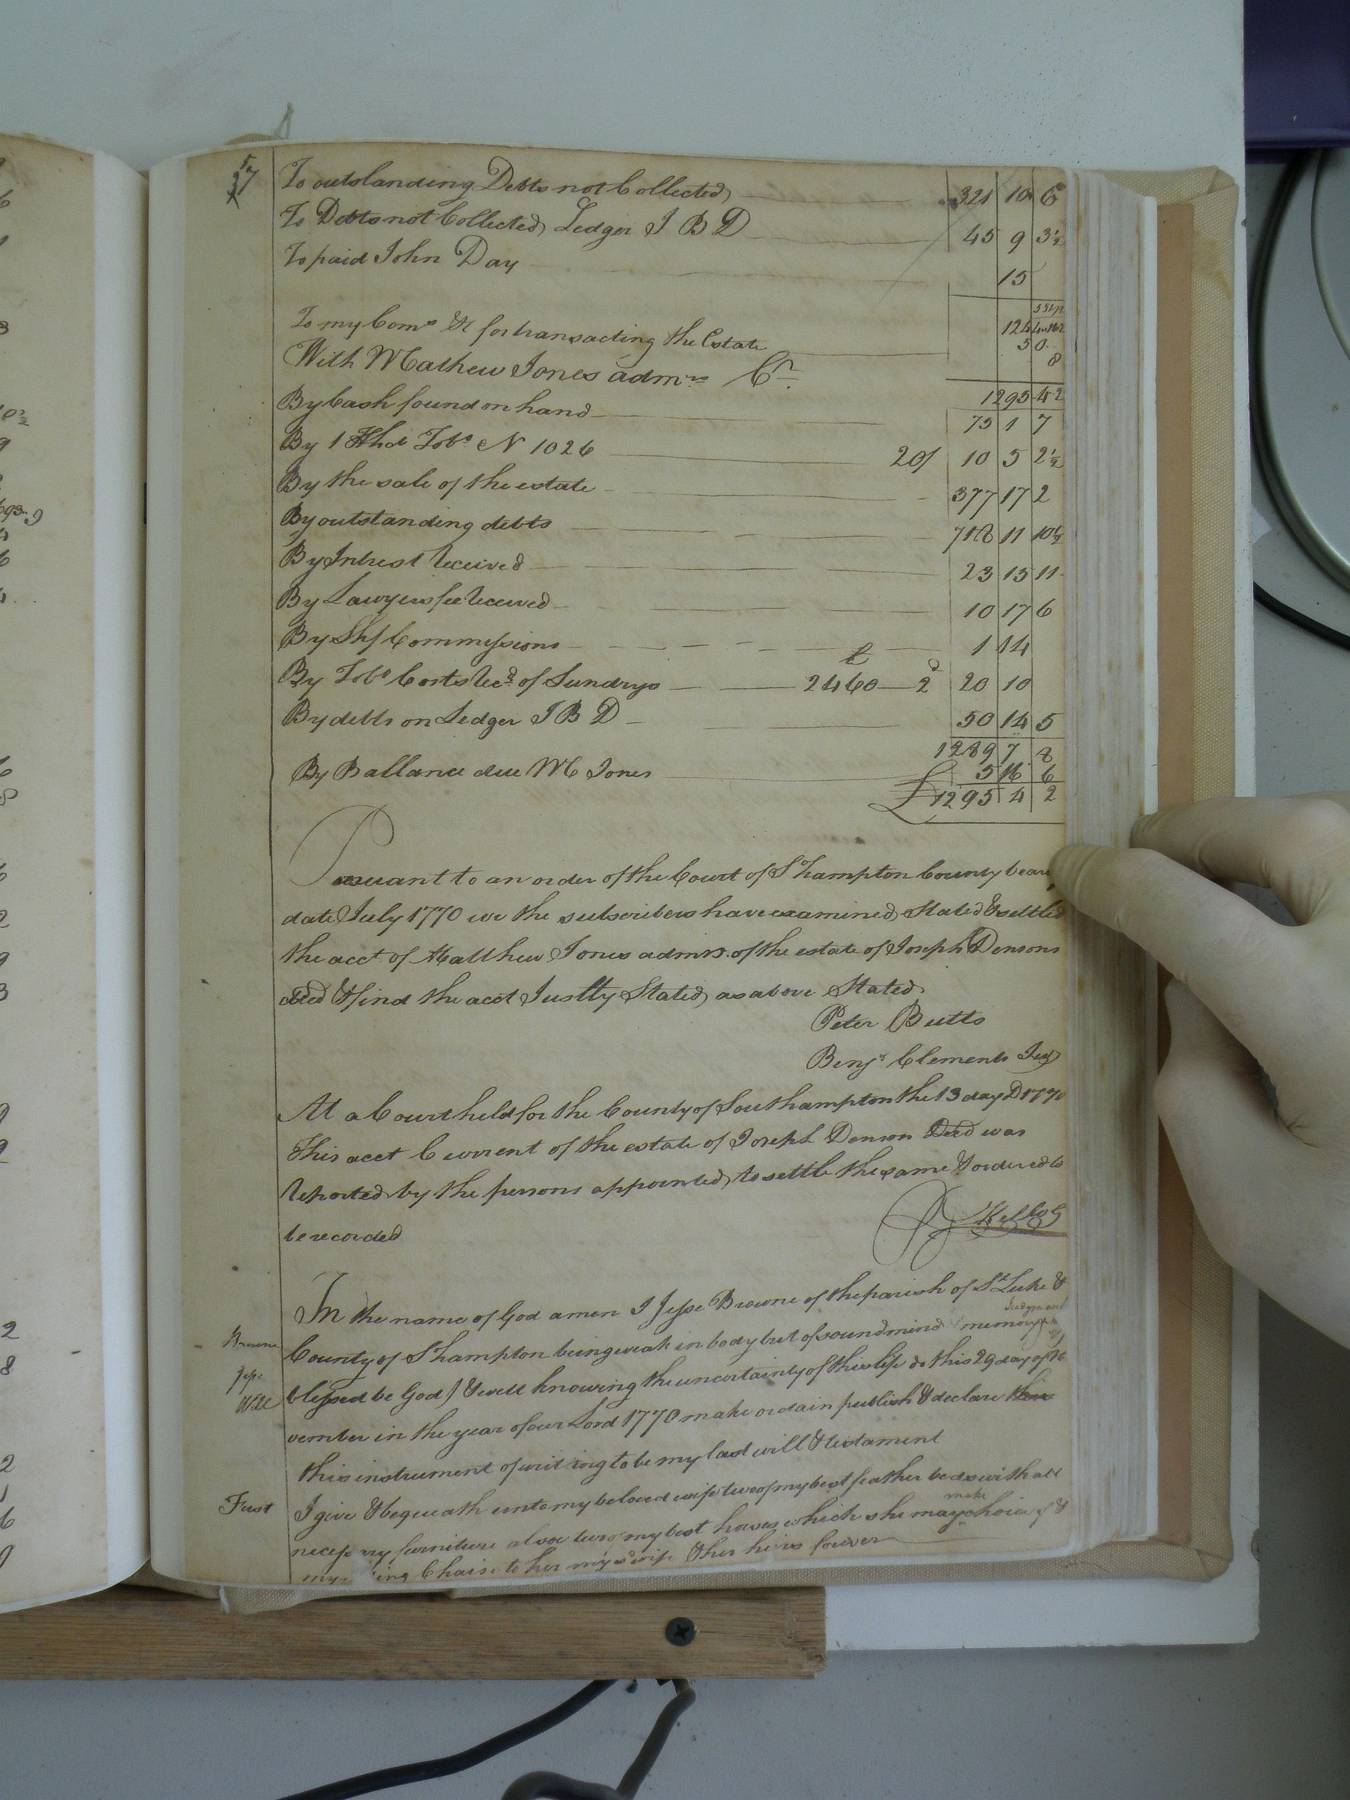 To outstanding Debts not Collected 321 10 6
To Debts not Collected Ledger I B D 45 9 3½
To paid John Day 15
To my Coms &c for transacting the Estate 50
With Mathew Jones admrs Cr. 8
1295 4 2
By Cash found on hand 75 1 7
By 1 Hhd Tobo N 1026 20/ 10 5 2½
By the sale of the estate 377 17 2
By outstanding debts 718 11 10½
By Intrest Received 23 15 11
By Lawyers fee Received 10 17 6
By Shf Commissions 1 14
By Tobo Costs Recd of Sundrys 2460 2d 20 10
By debts on Ledger I B D 50 14 5
1289 7 8
By Ballance due M Jones 5 16 6
£ 1295 4 2
Pursuant to an order of the Court of S'hampton County bearg
date July 1770 we the subscribers have examined, Stated & settled
the acct of Matthew Jones admrs. of the estate of Joseph Densons
decd & find the acct Justly Stated, as above Stated
Peter Butts
Benja Clements Jur
At a Court held for the County of Southampton the 13 day D 1770
This acct Current of the estate of Joseph Denson Decd was
Reported by the persons appointed, to settle the same & ordered to
be recorded
In the name of God amen I Jesse Browne of the parish of St Luke &
Browne
County of S'hampton being weak in body but of sound mind memory
Jesse
Will
blessed be God) & well knowing the uncertainty of this life do this 29 day of No
vember in the year of our Lord 1770 make ordain publish & declare this
this instrument of writing to be my last will & testament
First
I give & bequeath unto my beloved wife two of my best feather beds with all
necessary furniture also two my best horses which she may make choice of &
my Chair to her my wife & her heirs forever